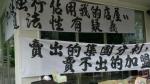 行佔用我的店屋
法性有疑義
賣出的集團分利，
賣不出的加盟